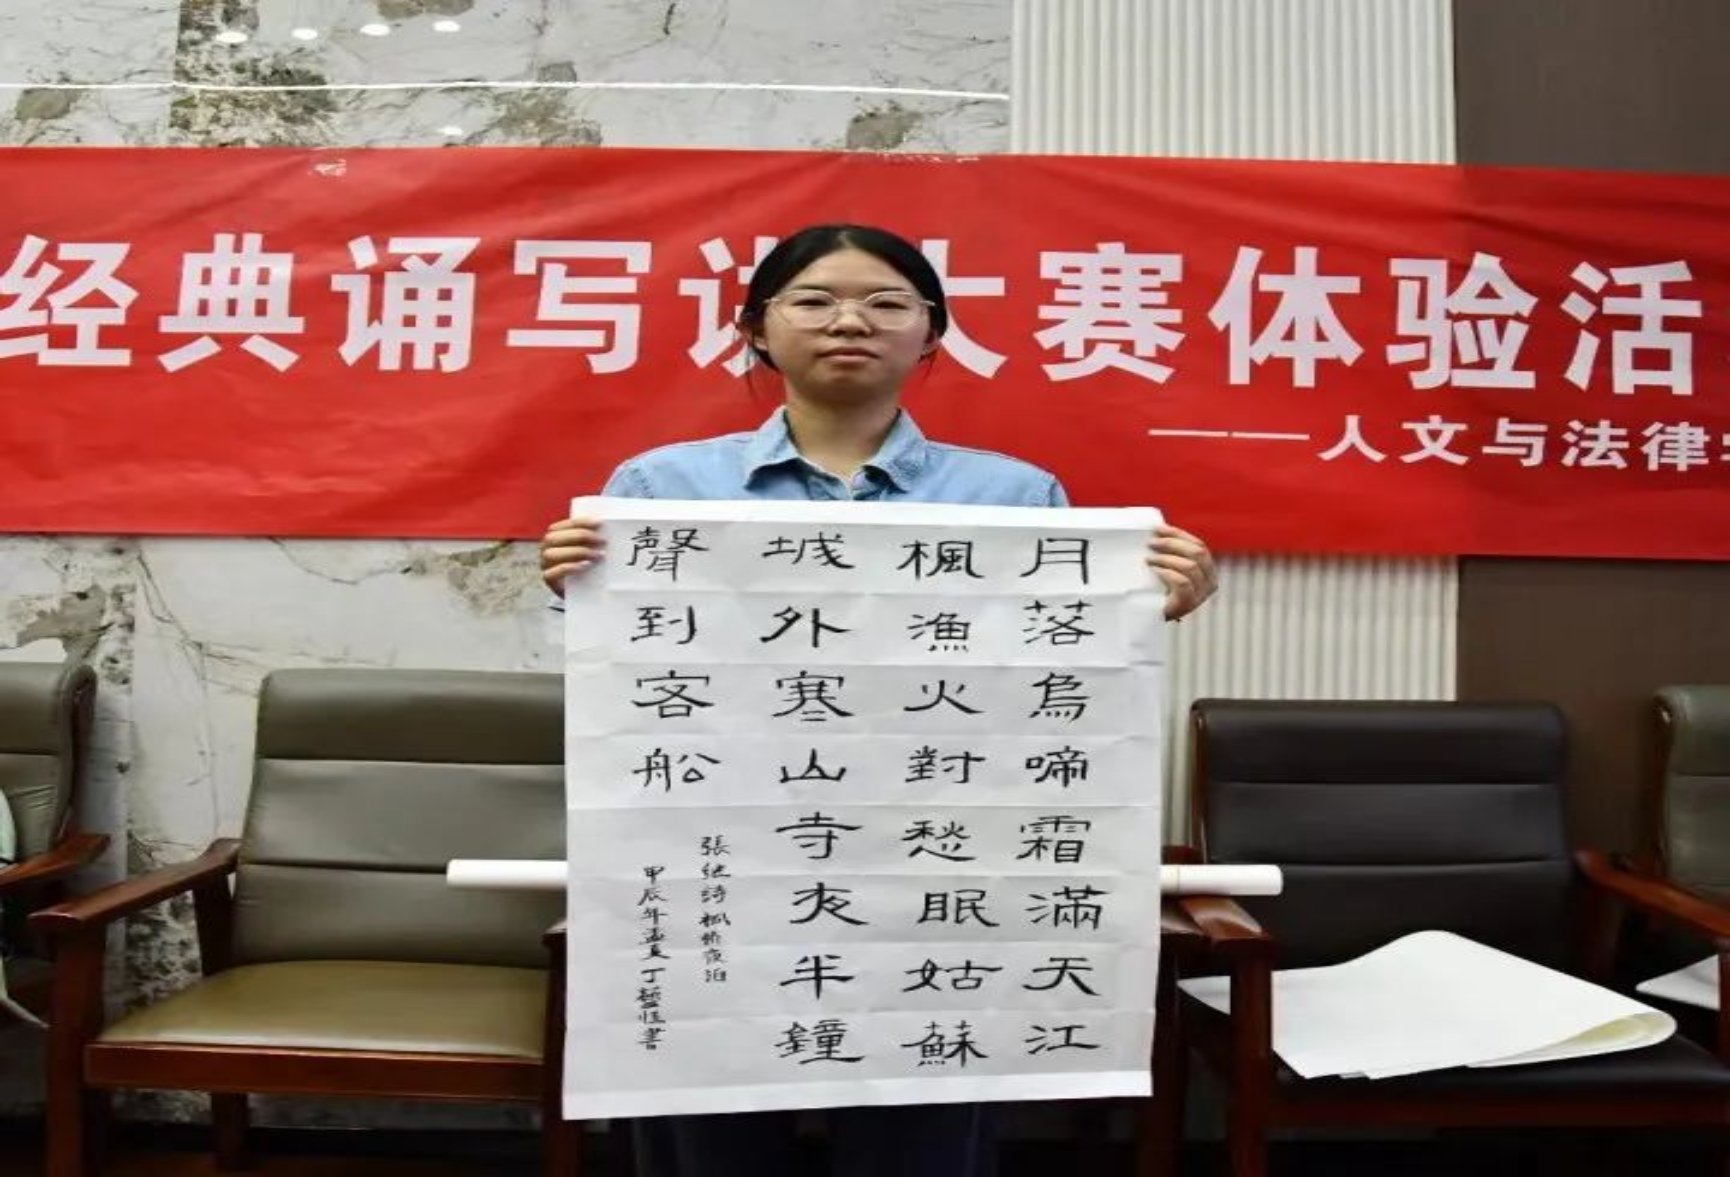 经典诵写讲大赛体验活
——人文与法律学
月落烏啼霜滿天江
楓漁火對愁眠姑蘇
城外寒山寺夜半鐘
聲到客船
張继诗楓桥夜泊
甲辰年孟夏丁藝恒書